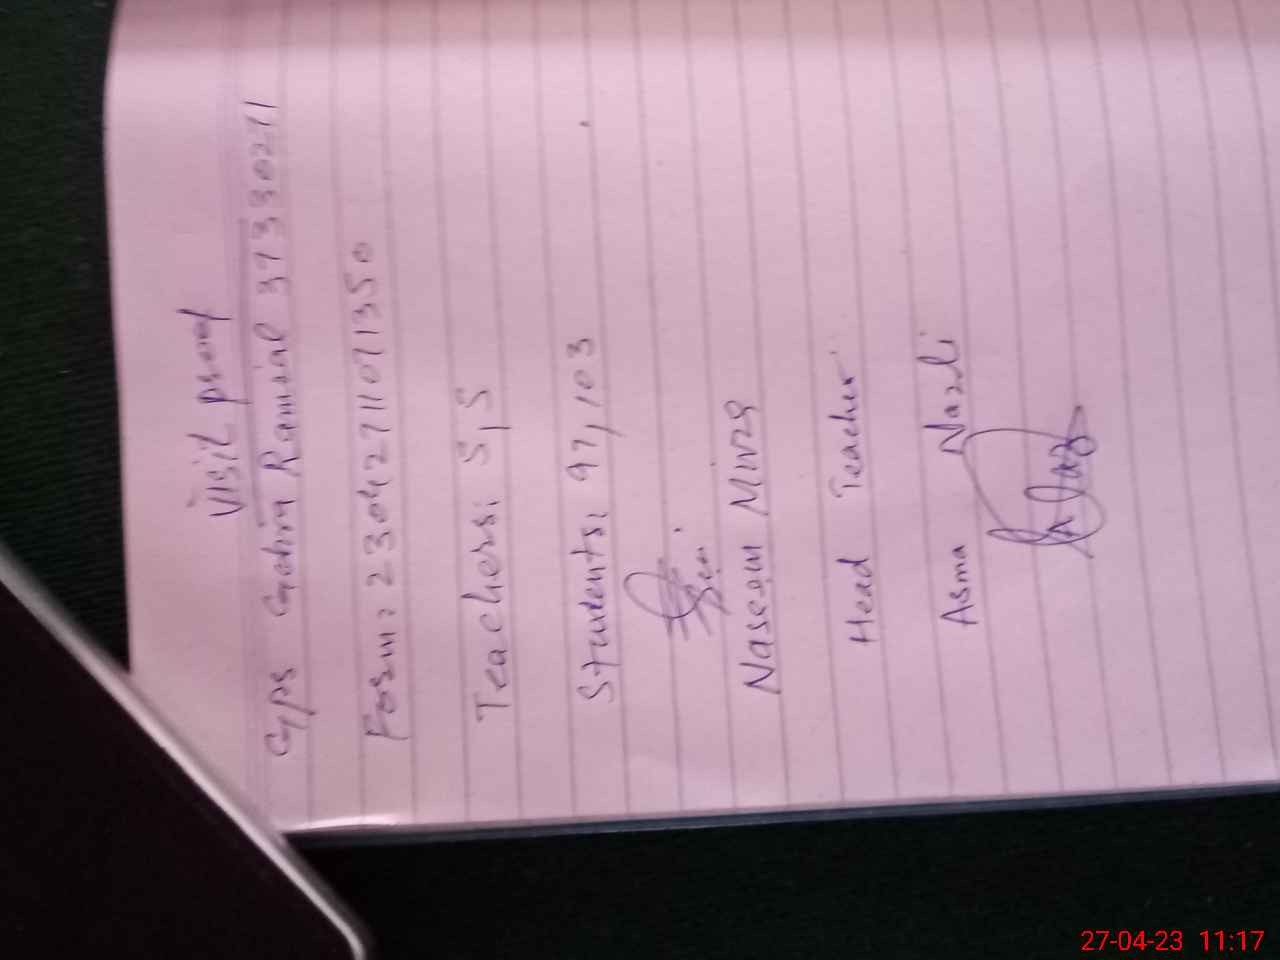 Visit proof
GPS Gohra Ramial 37330271
Form: 23042711071350
Teachers: 5,5
Students: 97,103
Naseem Mirza
Head Teacher
Asma Nazli
27-04-23 11:17